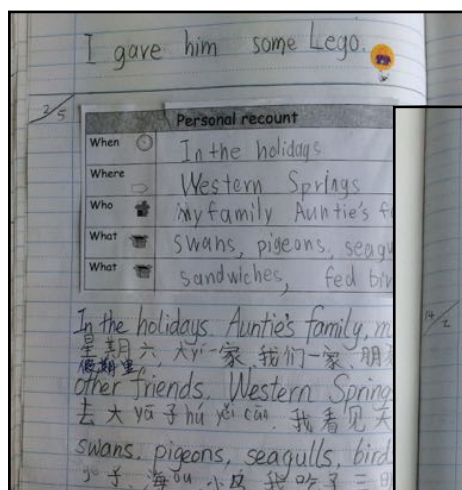 I gave him some Lego.
2/5
Personal recount
When In the holidays
Where Western Springs
Who My family Auntie's
What swans, pigeons,
What sandwiches, fed
In the holidays. Auntie's family,
星期六 大yí一家、我们一家、
假期里,
other friends. Western Spring
去大 yā 子 hú 我看见
14/2
swans, pigeons, seagulls, bird
子、海 ōu、小鸟 我吃了三